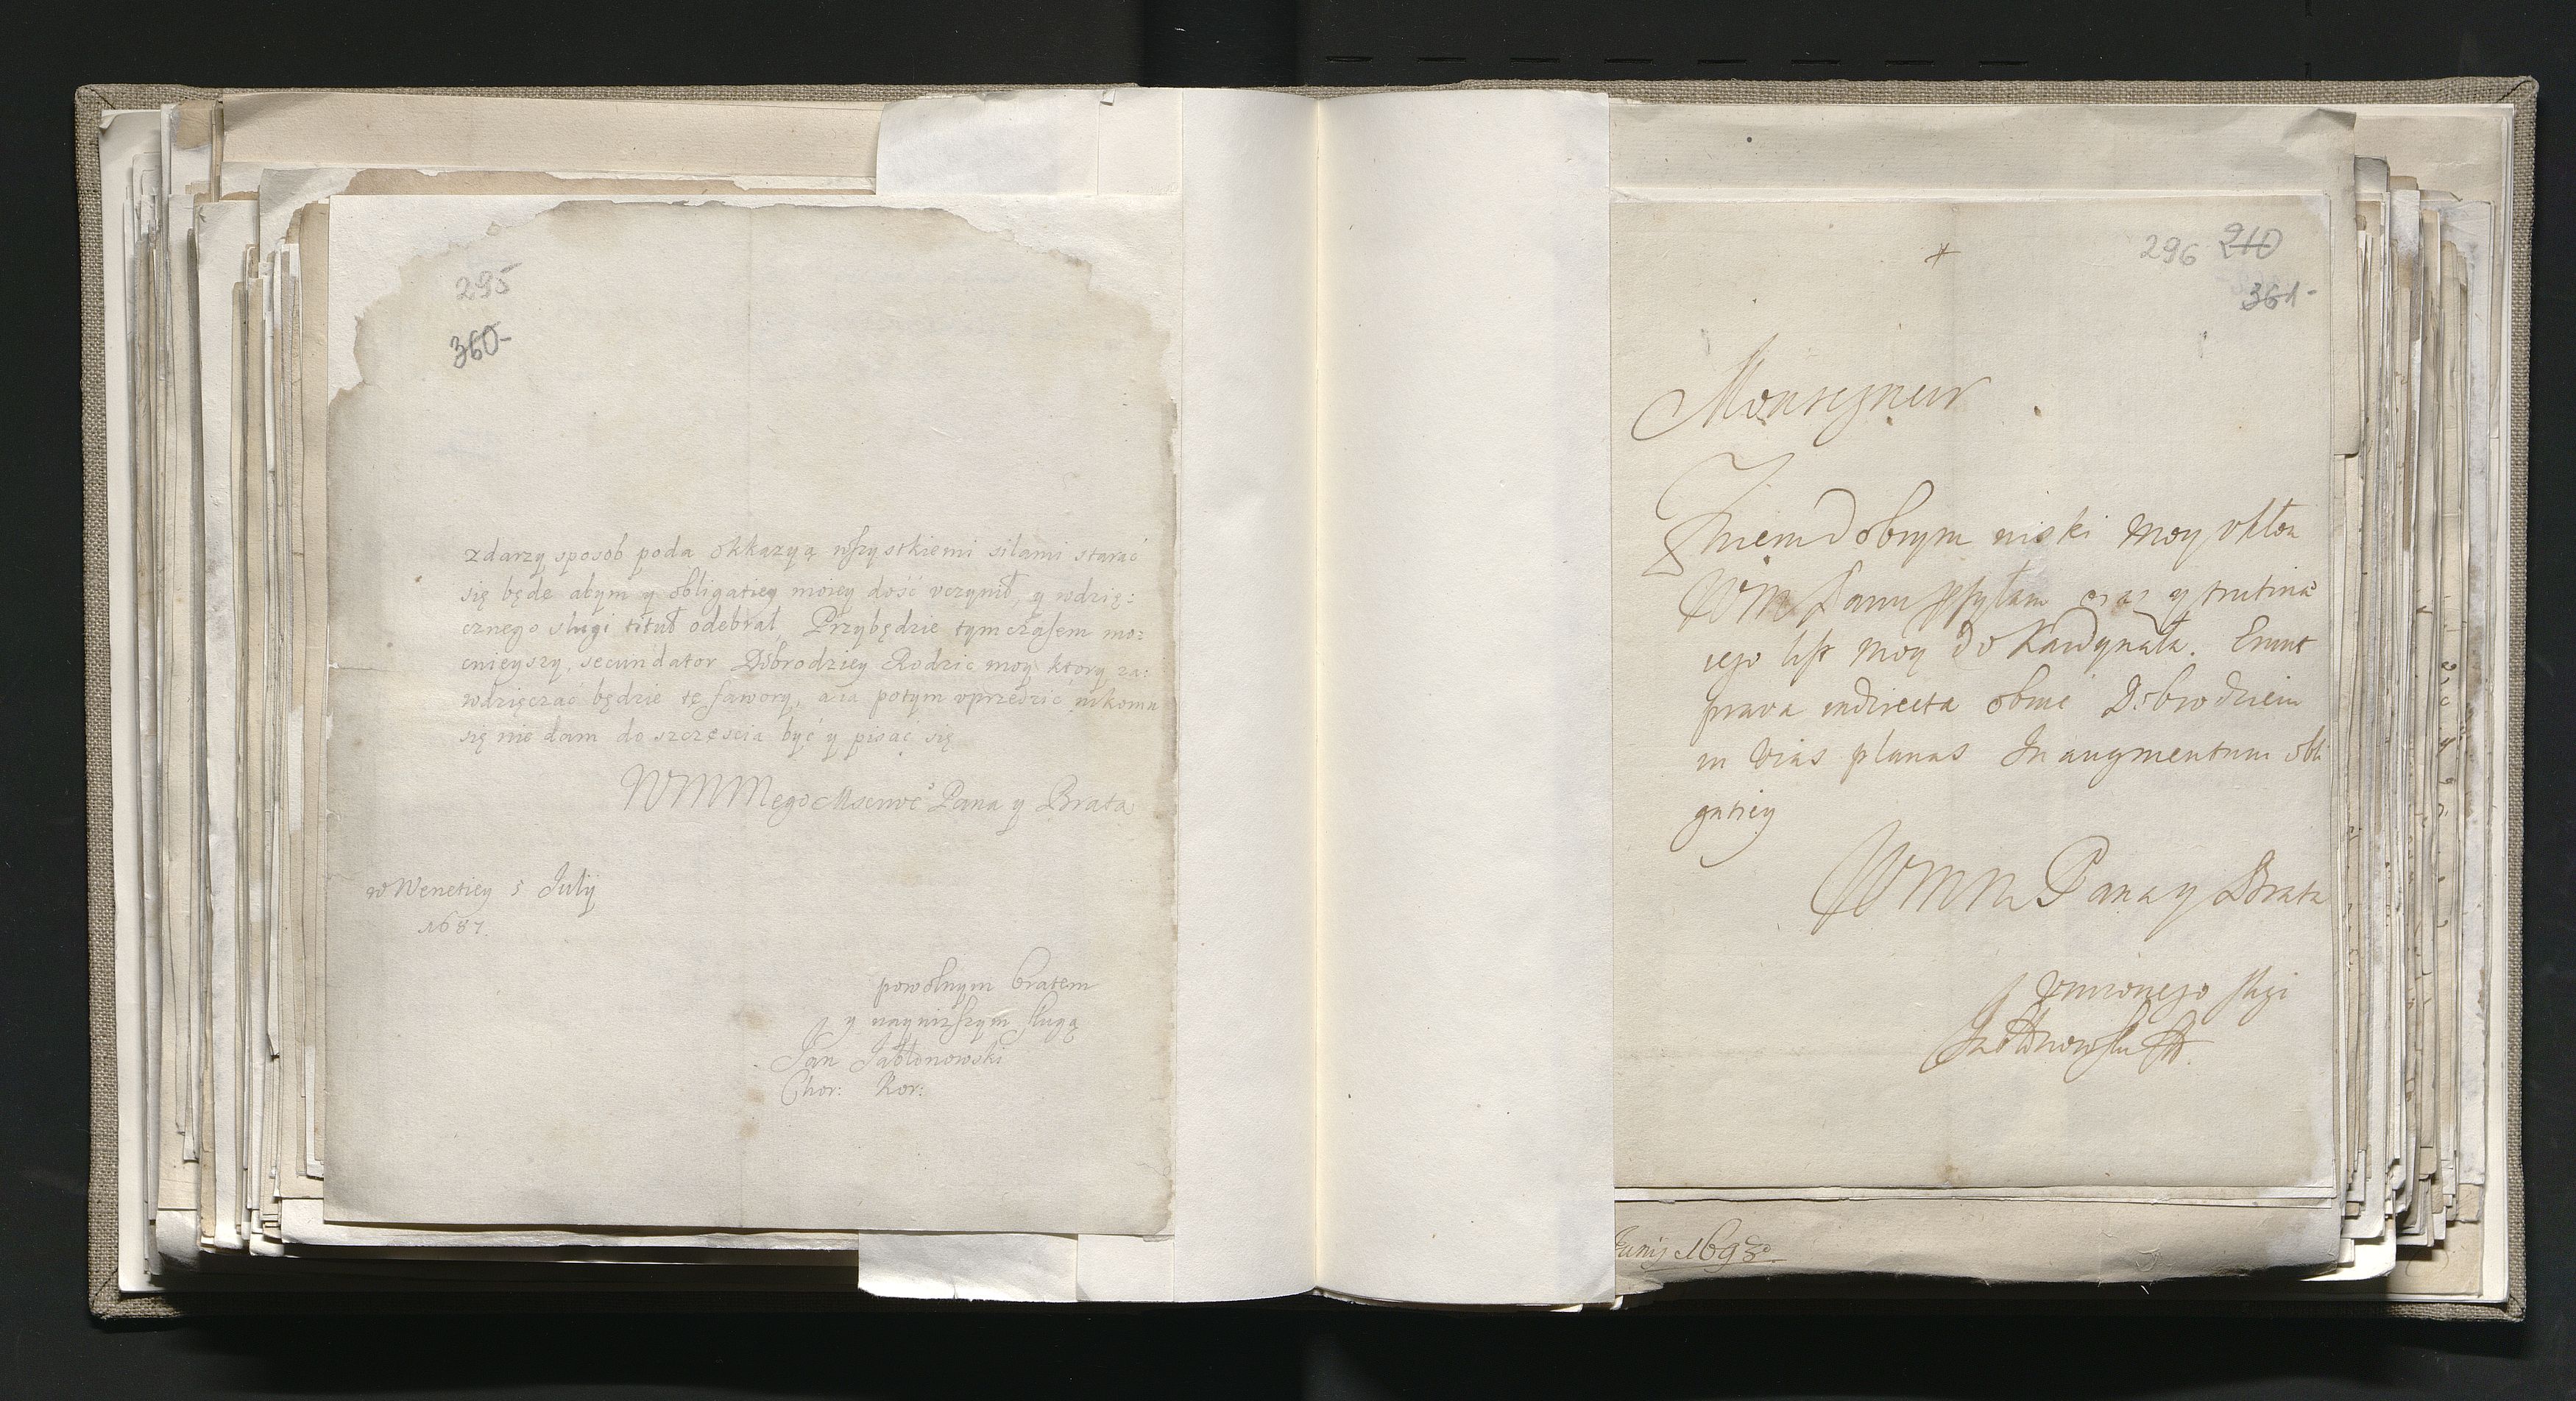 295
360-
zdarzy sposob poda okkazyą wszystkiemi siłami starać
się będe abym y obligatiey moiey dość vczynił, y wdzię:
cznego sługi tituł odebrał, Przybędzie tym czasem mo:
cnieyszy, secundator Dobrodziey Rodzic moy ktory za:
wdzięczać będzie tę fawory, a ia potym vprzedzić nikomu
się nie dam do szczęscia być y pisać się
WMMego Msciwe° Pana y Brata
w Wenetiey 5 July
1687.
powolnym bratem
y naynizszym sługą
Jan Jabłonowski
Chor: Kor:
296 210
361-
Monsegneur
Z niem Dobrym niski moy vkłon
WM Panu przsyłam oraz y
iego list moy do Kardynała. Erunt
prava indirecta obmi Dobrodzieiu
in vias planas In augmentum obli
gatiey
WMM Pana y Brata
vnizonego sługi
Jabłonowski
Junij 1693°.